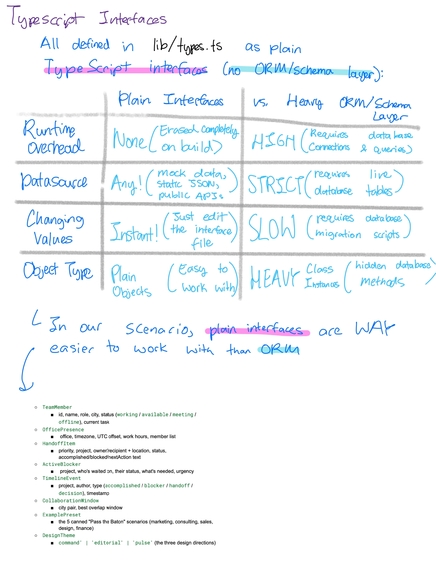 Typescript Interfaces
All defined in lib/types.ts as plain
TypeScript interfaces (no ORM/schema layer):
Plain Interfaces vs. Heavy ORM/Schema Layer
Runtime Overhead None (Erased completely on build) HIGH (Requires database Connections & queries)
Datasource Any! (mock data, static JSON, public APIs) STRICT (requires live database tables)
Changing Values Instant! (Just edit the interface file) SLOW (requires database migration scripts)
Object Type Plain Objects (Easy to work with) HEAVY Class Instances (hidden database methods)
In our scenario, plain interfaces are WAY
easier to work with than ORM
TeamMember
id, name, role, city, status (working / available / meeting /
offline), current task
OfficePresence
office, timezone, UTC offset, work hours, member list
HandoffItem
priority, project, owner/recipient + location, status,
accomplished/blocked/nextAction text
ActiveBlocker
project, who's waited on, their status, what's needed, urgency
TimelineEvent
project, author, type (accomplished / blocker / handoff /
decision), timestamp
CollaborationWindow
city pair, best overlap window
ExamplePreset
the 5 canned "Pass the Baton" scenarios (marketing, consulting, sales,
design, finance)
DesignTheme
command' | 'editorial' | 'pulse' (the three design directions)